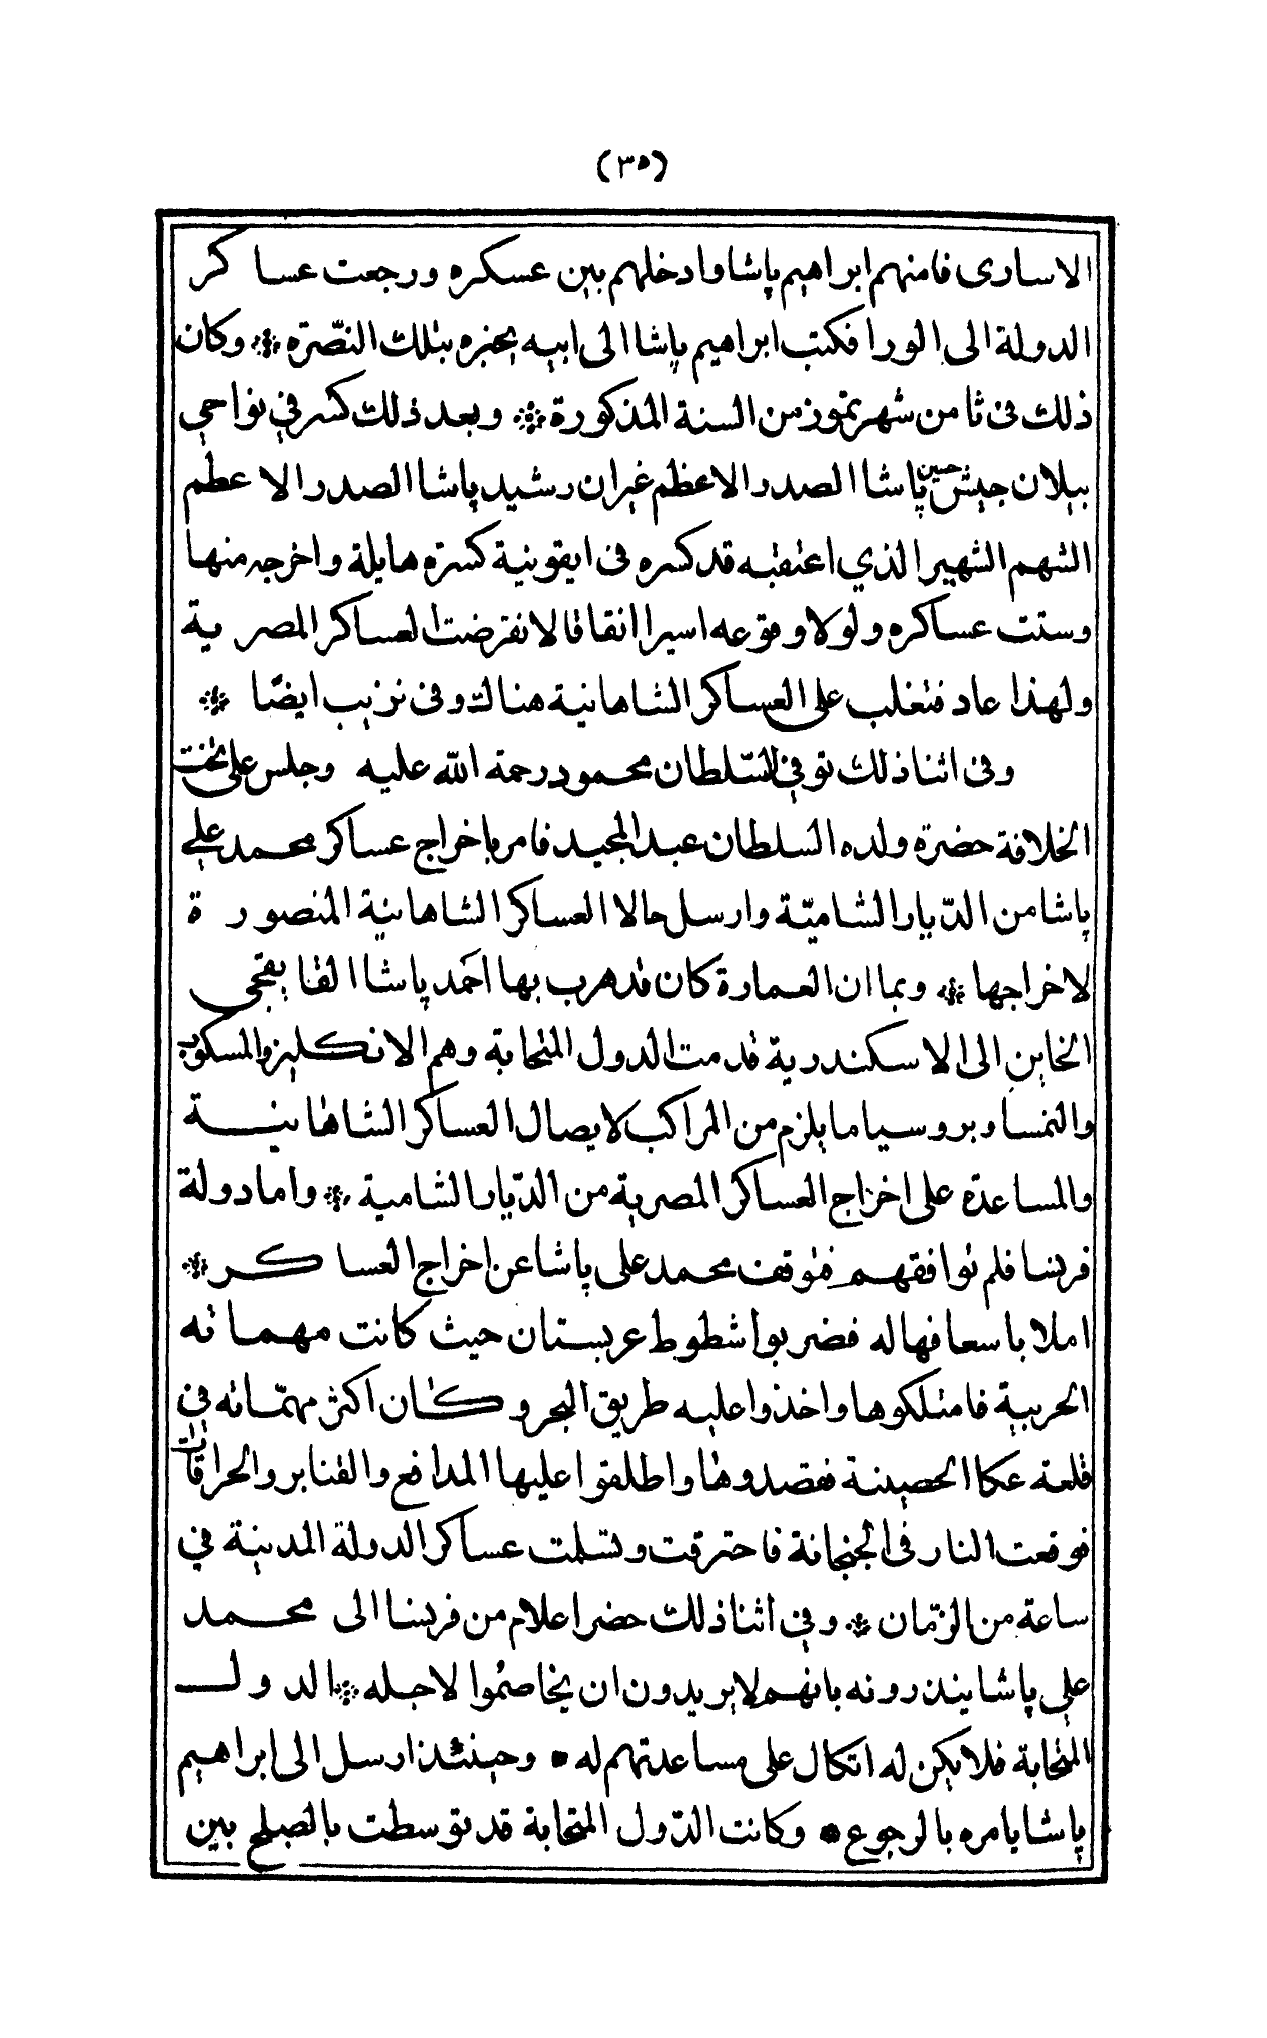 (٣٥)
الاسارى فامنهم ابراهيم پاشا وادخلهم بين عسكره ورجعت عساكر
الدولة الى الورا فكتب ابراهيم پاشا الى ابيه يخبره بتلك النّصرة ❊ وكان
ذلك فى ثامن شهر تموز من السنة المذكورة ❊ وبعد ذلك كسر في نواحي
بيلان جيش حسين پاشا الصدر الاعظم غيران رشيد پاشا الصدر الاعظم
الشهم الشهير الذي اعتقبه قد كسره فى ايقونية كسرة هايلة واخرجه منها
وستت عساكره ولولا وقوعه اسيرا اتفاقا لانقرضت العساكر المصرية
ولهذا عاد فتغلب على العساكر الشاهانية هنالك وفى نزيب ايضًا ❊
وفى اثنا ذلك توفي السّلطان محمود رحمة الله عليه وجلس على تخت
الخلافة حضرة ولده السلطان عبد المجيد فامر باخراج عساكر محمد علي
پاشا من الدّيار الشاميّة وارسل حالا العساكر الشاهانية المنصورة
لاخراجها ❊ وبما ان العمارة كان قد هرب بها احمد پاشا القابقجى
الخاين الى الاسكندرية قدمت الدول المتحابة وهم الانكليز والمسكوب
والنمسا وبروسيا ما يلزم من المراكب لايصال العساكر الشاهانية
والمساعدة على اخراج العساكر المصرية من الدّيار الشامية ❊ واما دولة
فرنسا فلم توافقهم فتوقف محمد على پاشا عن اخراج العساكر ❊
املا باسعافها له فضربوا شطوط عربستان حيث كانت مهماته
الحربية فامتلكوها واخذوا عليه طريق البحر وكان اكثر مهمّاته في
قلعة عكا الحصينة فقصدوها واطلقوا عليها المدافع والقنابر والحراقات
فوقعت النار فى الجبخانة فاحترقت وتسلمت عساكر الدولة المدينة في
ساعة من الزمان ❊ وفي اثنا ذلك حضر اعلام من فرنسا الى محمد
علي پاشا ينذرونه بانهم لا يريدون ان يخاصمُوا لاجله ❊ الدول
المتحابة فلا يكن له اتكال على مساعدتهم له • وحينئذ ارسل الى ابراهيم
پاشا يامره بالرجوع • وكانت الدّول المتحابة قد توسطت بالصلح بين